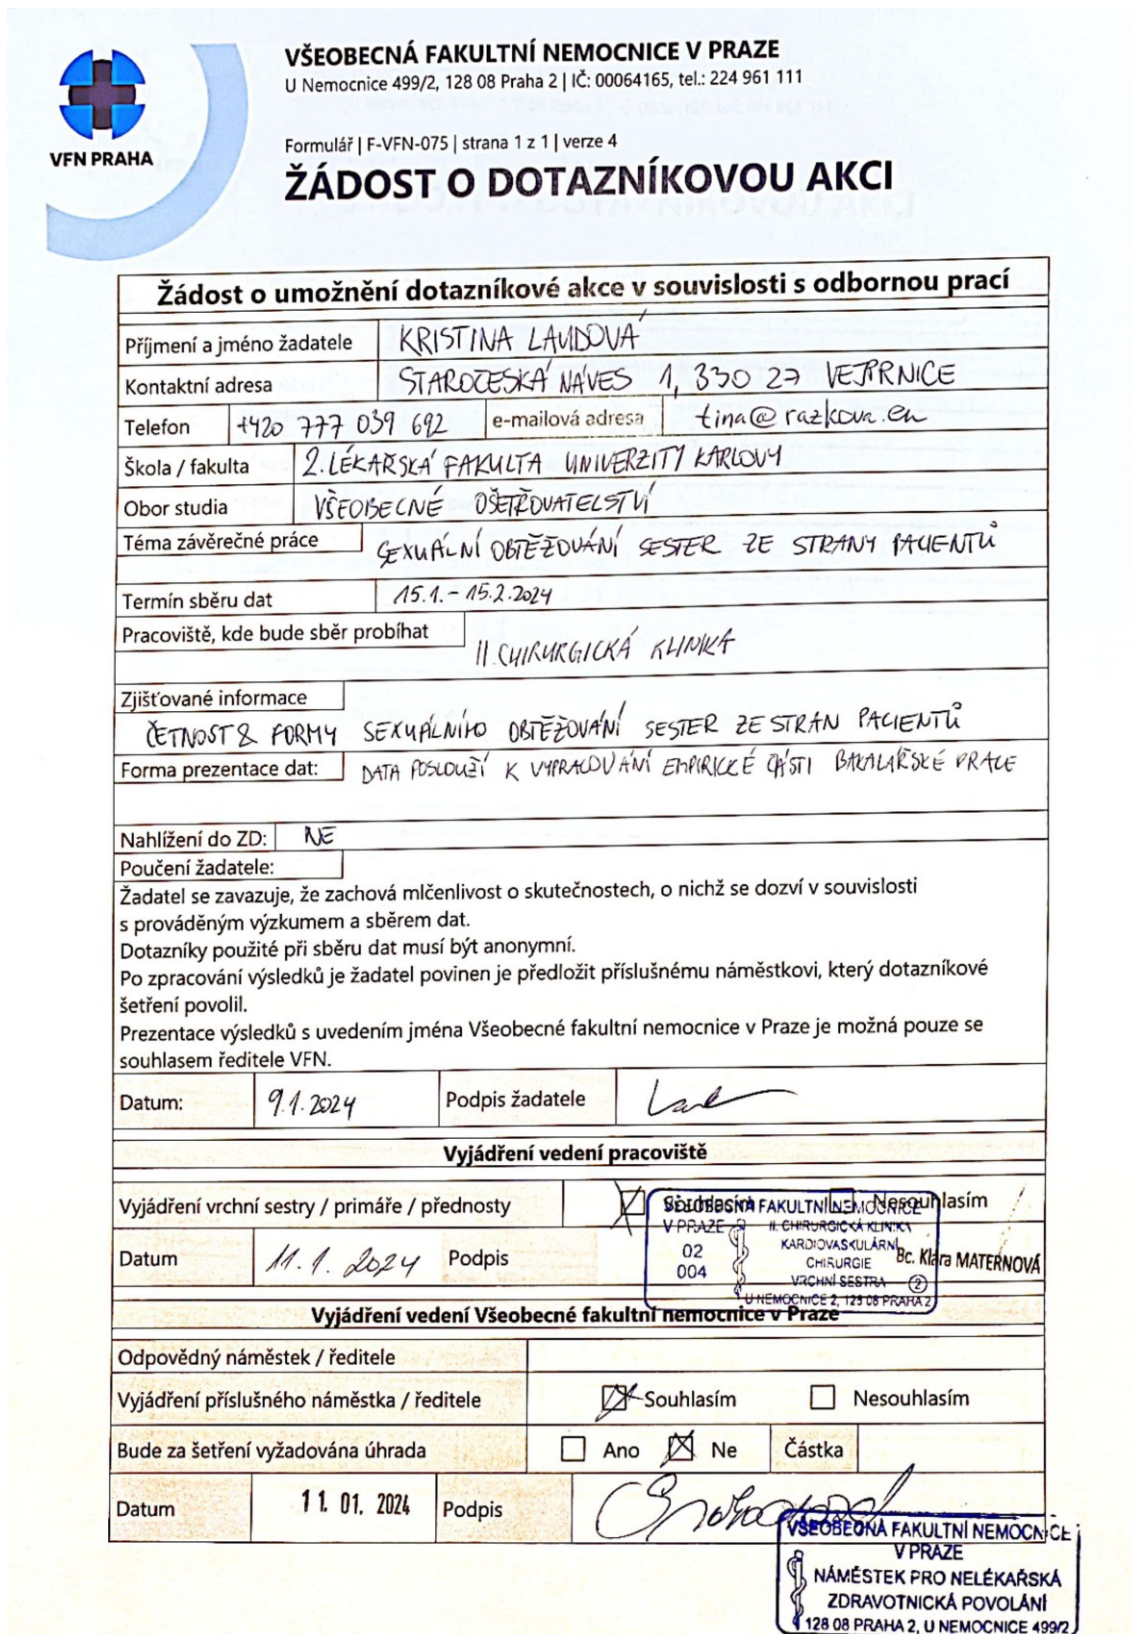 VFN PRAHA
VŠEOBECNÁ FAKULTNÍ NEMOCNICE V PRAZE
U Nemocnice 499/2, 128 08 Praha 2 | IČ: 00064165, tel.: 224 961 111
Formulář | F-VFN-075 | strana 1 z 1 | verze 4
ŽÁDOST O DOTAZNÍKOVOU AKCI
Žádost o umožnění dotazníkové akce v souvislosti s odbornou prací
Příjmení a jméno žadatele KRISTINA LAUDOVÁ
Kontaktní adresa STAROČESKÁ NÁVES 1, 330 27 VEJPRNICE
Telefon +420 777 039 692 e-mailová adresa tina@razkova.eu
Škola / fakulta 2. LÉKAŘSKÁ FAKULTA UNIVERZITY KARLOVY
Obor studia VŠEOBECNÉ OŠETŘOVATELSTVÍ
Téma závěrečné práce SEXUÁLNÍ OBTĚŽOVÁNÍ SESTER ZE STRANY PACIENTŮ
Termín sběru dat 15.1. - 15.2.2024
Pracoviště, kde bude sběr probíhat II. CHIRURGICKÁ KLINIKA
Zjišťované informace
ČETNOST & FORMY SEXUÁLNÍHO OBTĚŽOVÁNÍ SESTER ZE STRAN PACIENTŮ
Forma prezentace dat: DATA POSLOUŽÍ K VYPRACOVÁNÍ EMPIRICKÉ ČÁSTI BAKALÁŘSKÉ PRÁCE
Nahlížení do ZD: NE
Poučení žadatele:
Žadatel se zavazuje, že zachová mlčenlivost o skutečnostech, o nichž se dozví v souvislosti
s prováděným výzkumem a sběrem dat.
Dotazníky použité při sběru dat musí být anonymní.
Po zpracování výsledků je žadatel povinen je předložit příslušnému náměstkovi, který dotazníkové
šetření povolil.
Prezentace výsledků s uvedením jména Všeobecné fakultní nemocnice v Praze je možná pouze se
souhlasem ředitele VFN.
Datum: 9.1.2024 Podpis žadatele
Vyjádření vedení pracoviště
Vyjádření vrchní sestry / primáře / přednosty Souhlasím Nesouhlasím
VŠEOBECNÁ FAKULTNÍ NEMOCNICE
V PRAZE II. CHIRURGICKÁ KLINIKA
02 KARDIOVASKULÁRNÍ
004 CHIRURGIE
VRCHNÍ SESTRA 2
U NEMOCNICE 2, 128 08 PRAHA 2
Bc. Klára MATERNOVÁ
Datum 11.1.2024 Podpis
Vyjádření vedení Všeobecné fakultní nemocnice v Praze
Odpovědný náměstek / ředitele
Vyjádření příslušného náměstka / ředitele Souhlasím Nesouhlasím
Bude za šetření vyžadována úhrada Ano Ne Částka
Datum 11. 01. 2024 Podpis
VŠEOBECNÁ FAKULTNÍ NEMOCNICE
V PRAZE
NÁMĚSTEK PRO NELÉKAŘSKÁ
ZDRAVOTNICKÁ POVOLÁNÍ
128 08 PRAHA 2, U NEMOCNICE 499/2